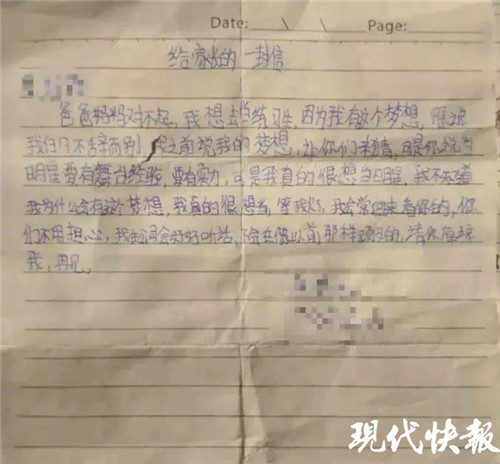 Date: \ \ Page:
给家长的一封信
爸爸妈妈对不起,我想去当练习生,因为我有这个梦想,原谅
我的不辞而别,我之前说我的梦想,让你们支持,可是你说当
明星要有舞台经验,要有实力,可是我真的很想当明星,我不知道
我为什么会有这个梦想,我真的很想当,等我火了,我会常回来看你的,你
们不用担心,我在公司会好好听话,不会在像以前那样顽皮的,请你原谅
我,再见。
现代快报